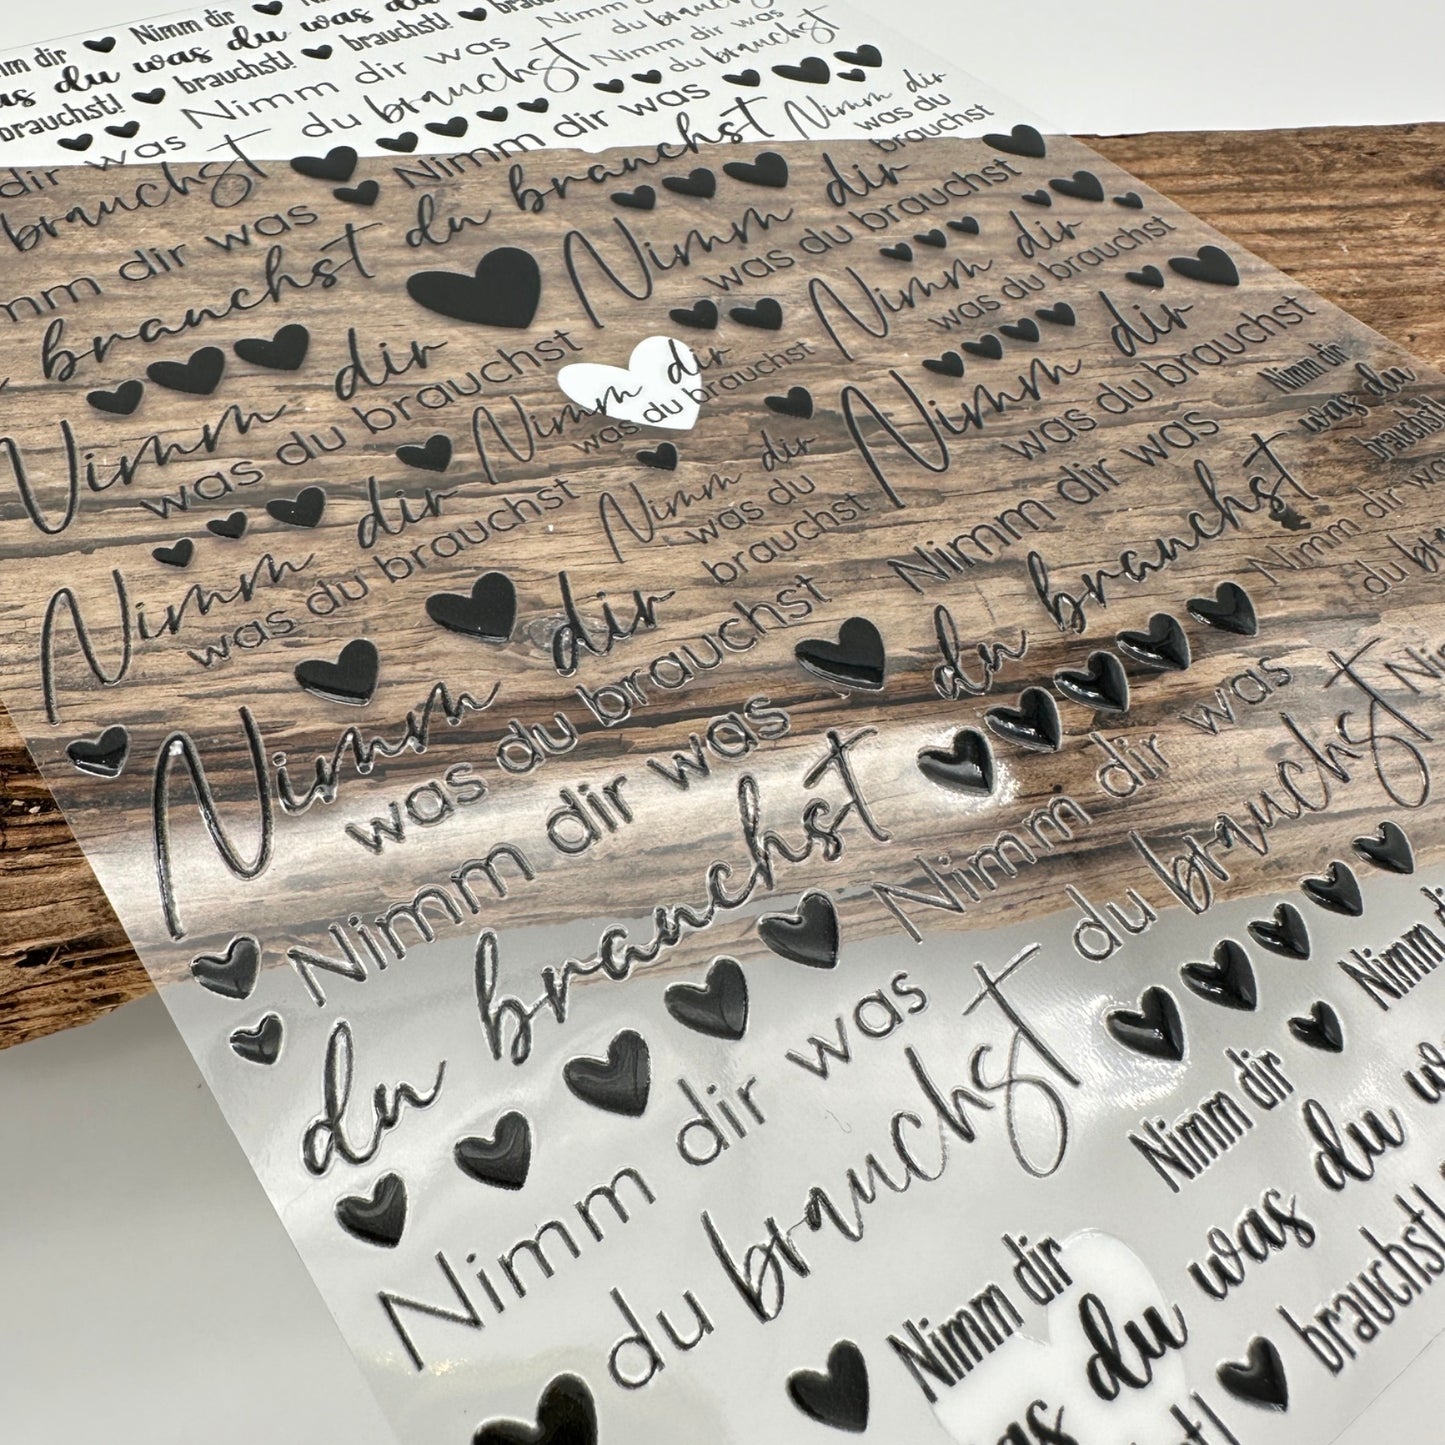 Nimm dir
was du was du
brauchst!
brauchst!
brauchst!
brauchst!
Nimm dir was
du brauchst
Nimm dir was
du brauchst
Nimm dir was
brauchst
Nimm dir was
du brauchst
Nimm dir
was du
brauchst
dir was
brauchst
Nimm dir
was du brauchst
Nimm dir
was du brauchst
Nimm dir
was du brauchst
Nimm dir
was du brauchst
Nimm dir
was du brauchst
Nimm dir
was du
brauchst
Nimm dir
was du brauchst
Nimm dir
was du
brauchst!
Nimm dir
was du brauchst
Nimm dir was
du brauchst
Nimm dir
was du brauchst
Nimm dir was
du brauchst
Nimm dir was
du brauchst
Nimm dir was
du brauchst
Nimm dir
was du
brauchst!
Nimm dir
du